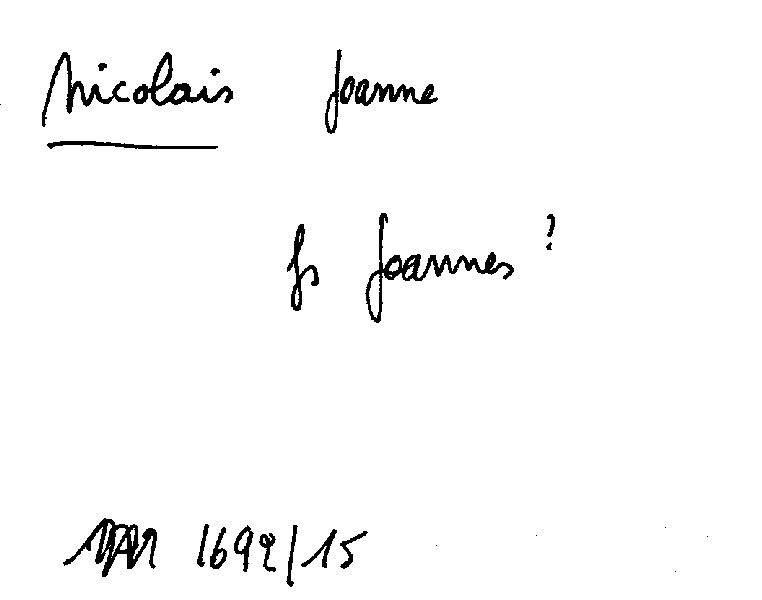 Nicolais Joanne
fs Joannes ?
1692/15